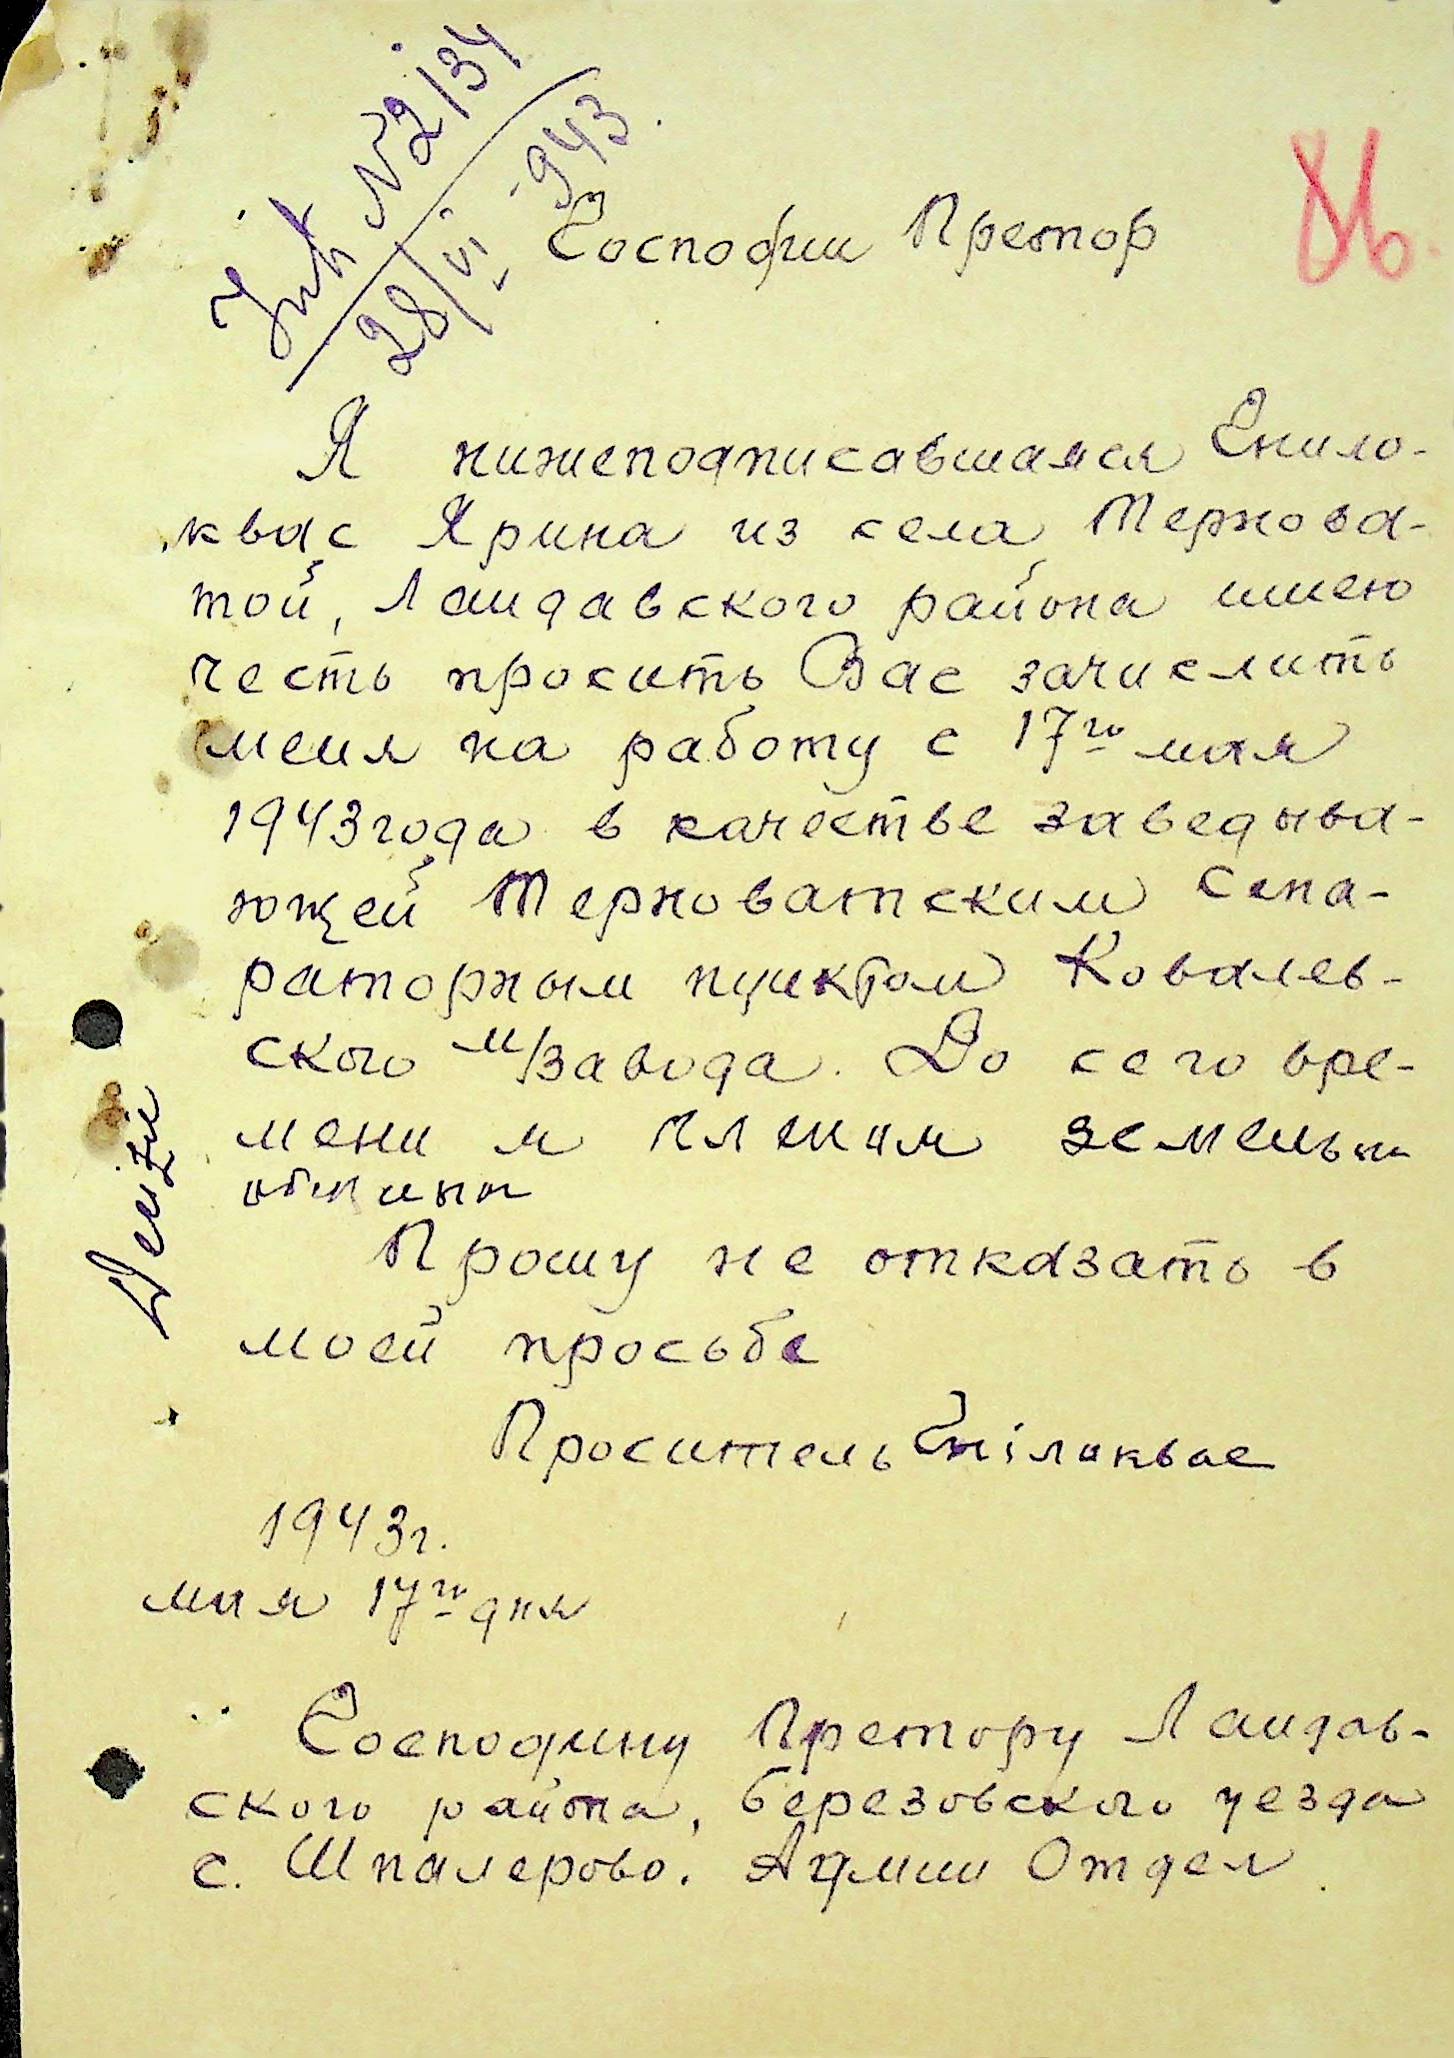 № 2134
28/VI - 943
86.
Господин Претор
Я нижеподписавшаяся Гнило-
квас Ярина из села Тернова-
той, Ландавского района имею
честь просить Вас зачислить
меня на работу с 17го мая
1943 года в качестве заведыва-
ющей Терноватским сепа-
раторным пунктом Ковалев-
ского м/завода. До сего вре-
мени я член земельн
общины
Прошу не отказать в
моей просьбе
Проситель Гнілоквас
1943 г.
мая 17го дня
Господину Претору Ландав-
ского района, Березовского уезда
с. Шпалерово. Админ Отдел